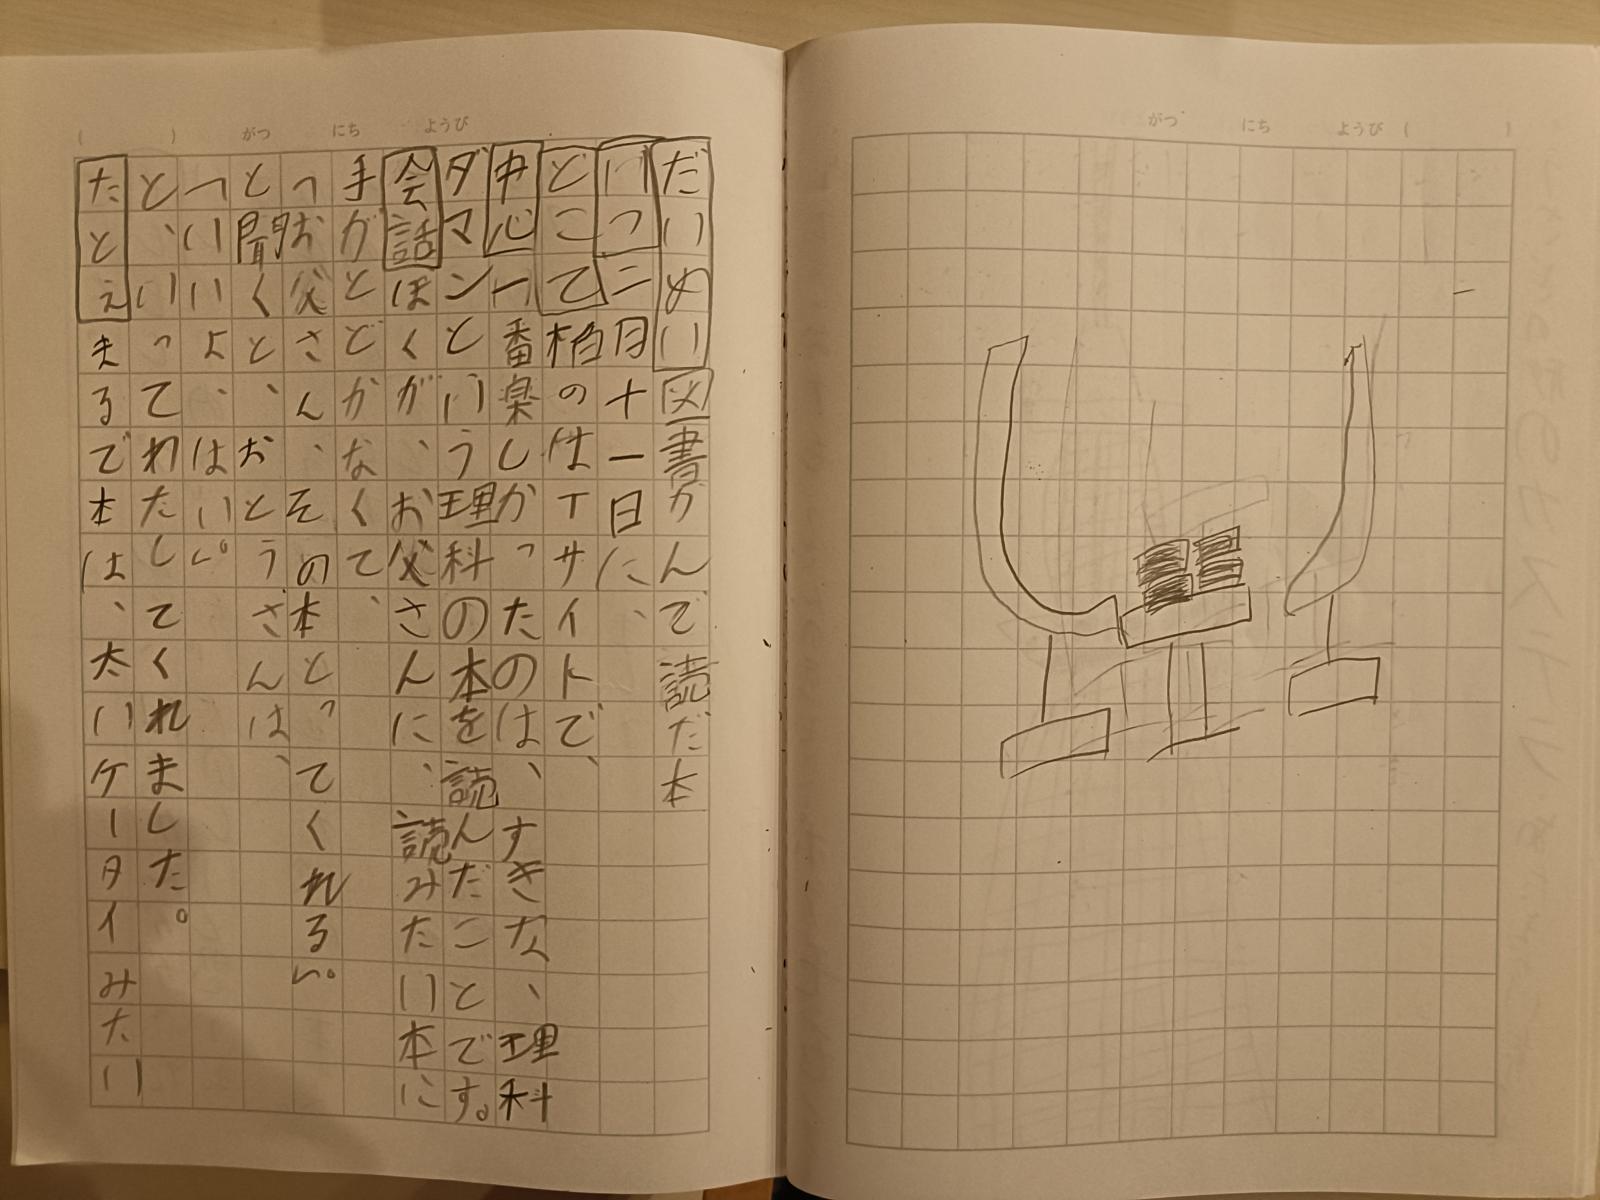 ( ) がつ にち ようび
だいめい図書かんで読だ本
いつ二月十一日に、
どこで柏のはTサイトで、
中心一番楽しかったのは、すきな、理科
ダマンという理科の本を読んだことです。
会話ぼくが、お父さんに、読みたい本に
手がとどかなくて、
「お父さん、その本とってくれる」。
と聞くと、おとうさんは、
「いいよ、はい」。
と、いってわたしてくれました。
たとえまるで本は、太いケータイみたい
がつ にち ようび ( )